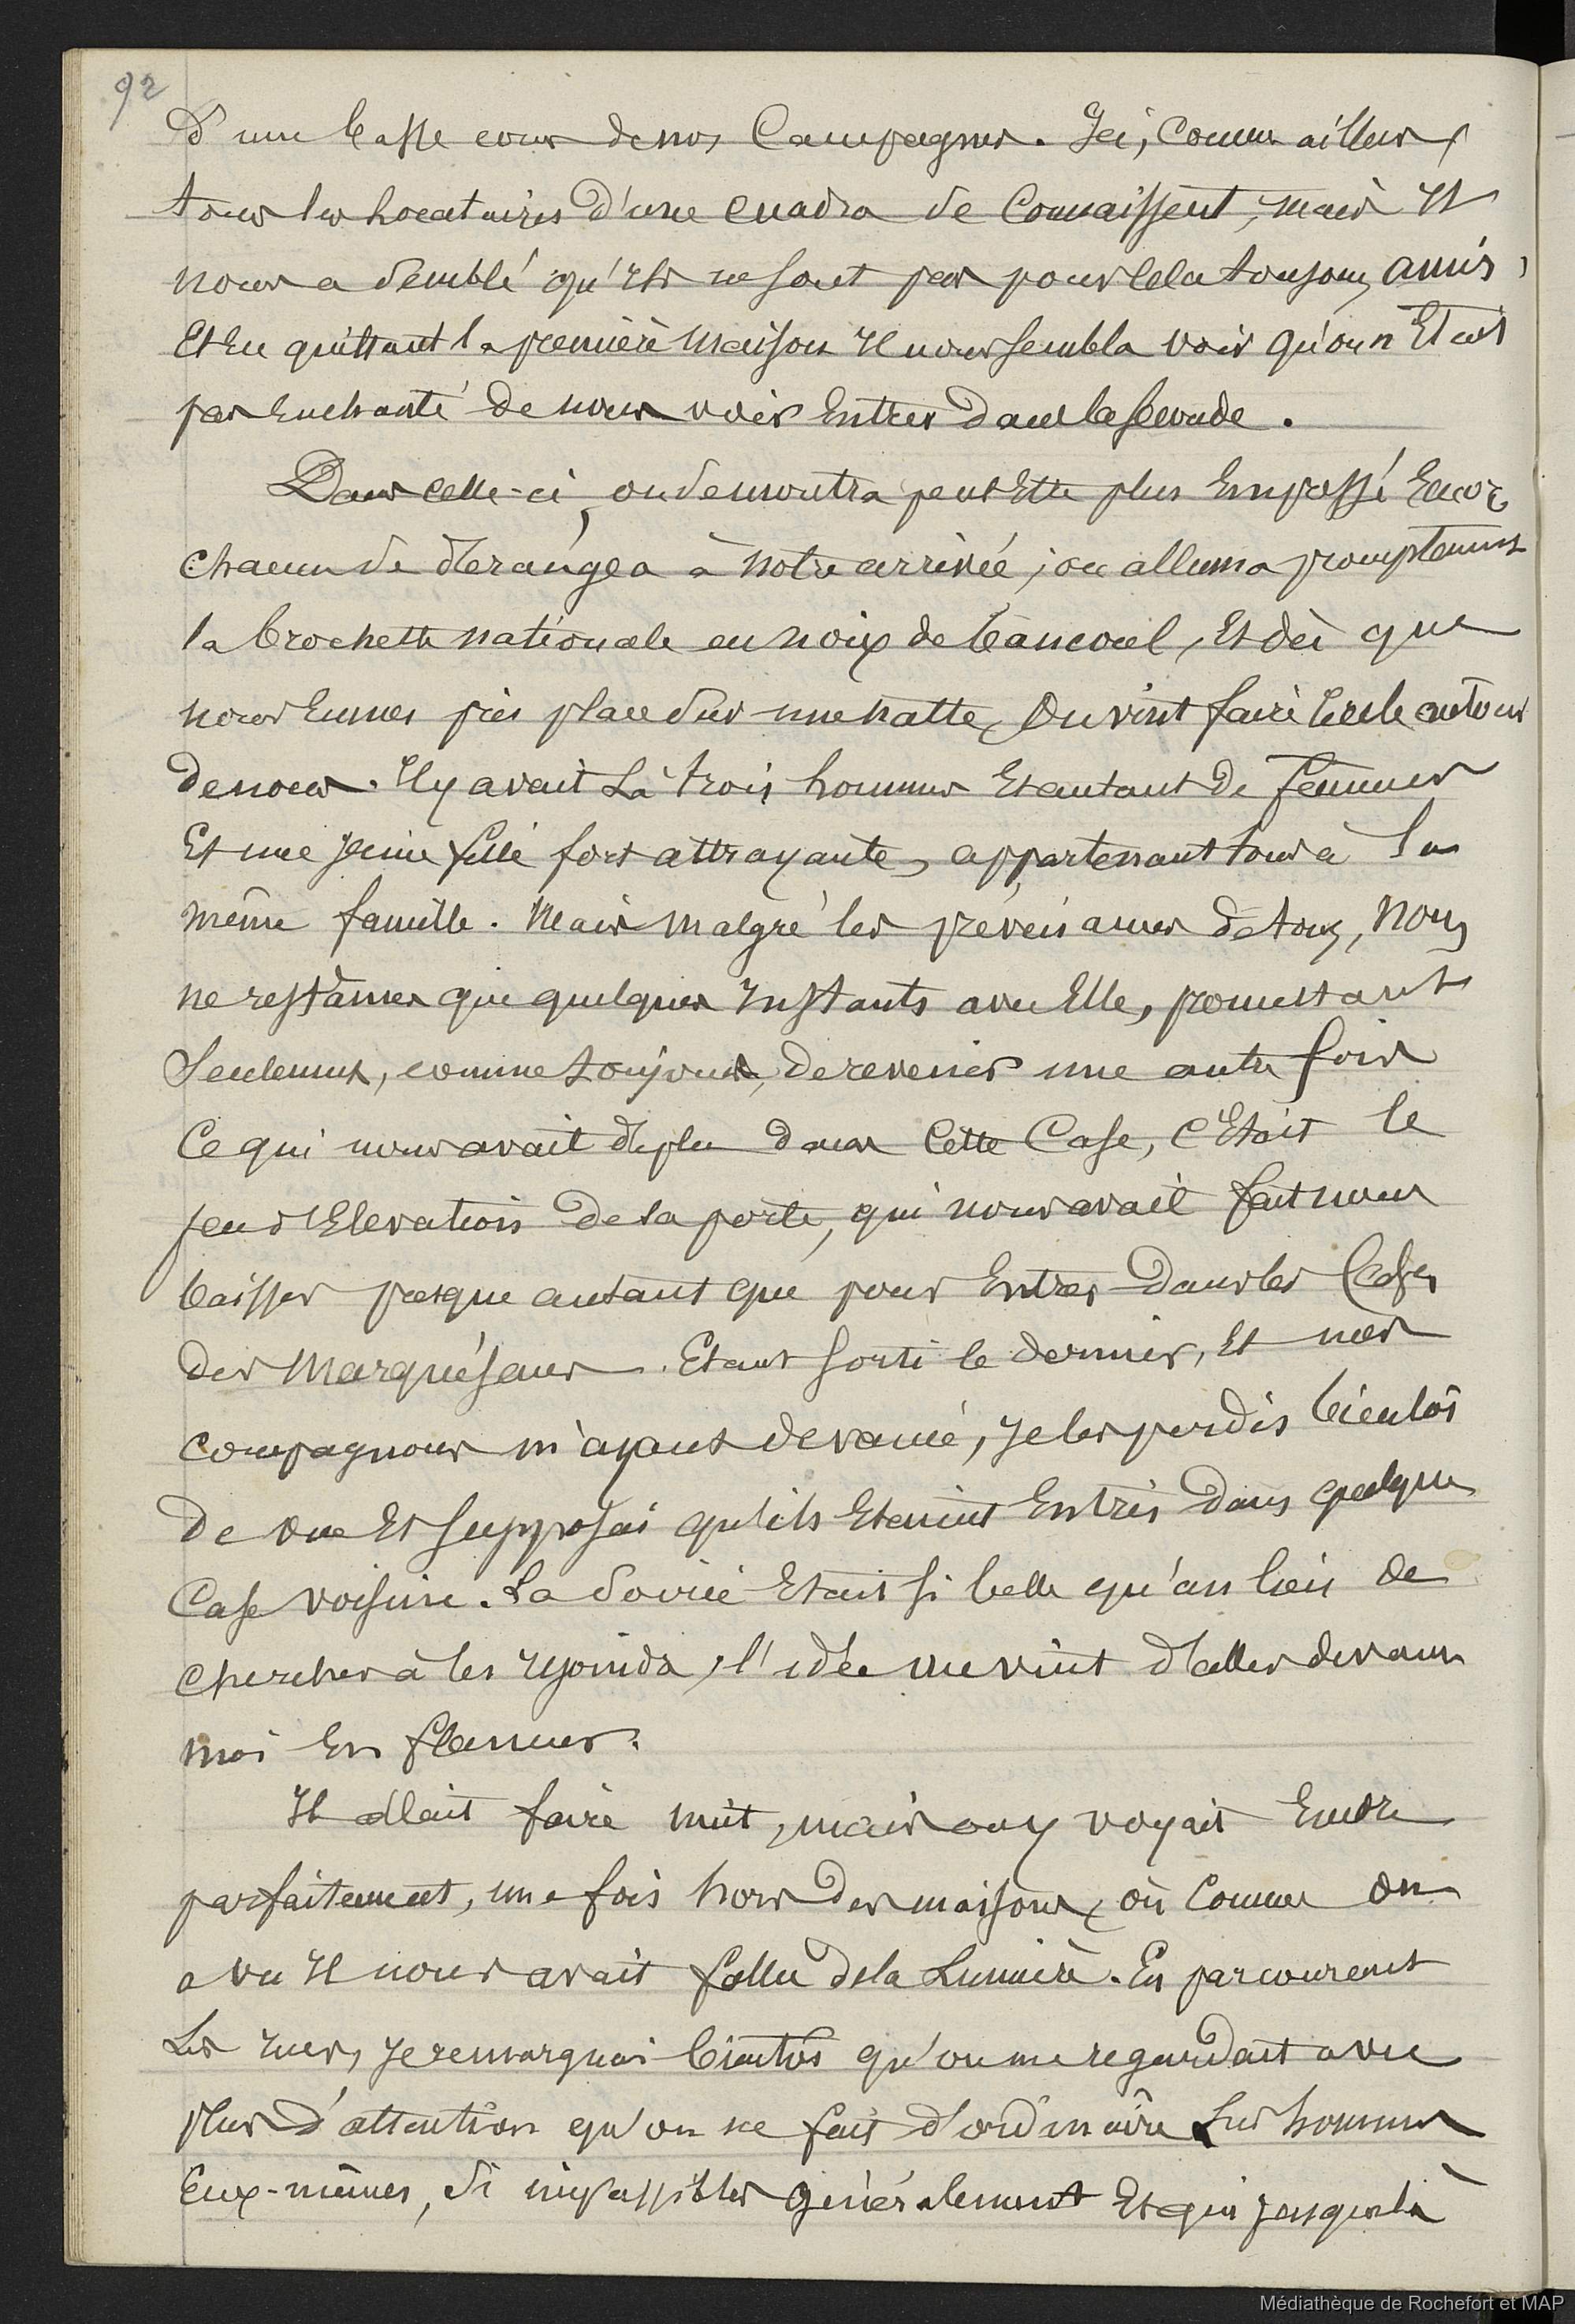 92
d'une basse cour de nos Campagnes. Ici, comme ailleurs,
tous les locataires d'une cuadra se connaissent, mais Il
nous a semblé qu'Ils ne sont pas pour cela toujours amis,
Et En quittant la première maison Il nous sembla voir qu'on n'Etait
pas Enchanté de nous voir Entrer dans la seconde.
Dans celle-ci, on se montra peut Etre plus Empressé Encore
chacun se dérangea à notre arrivée ; on alluma promptement
la brochette nationale en noix de bancoul, Et dès que
nous Eumes pris place sur une natte, On vint faire Cercle autour
de nous. Il y avait là trois hommes Et autant de femmes
Et une jeune fille fort attrayante, appartenant tous à la
même famille. Mais malgré les prévenances de tous, nous
ne restâmes que quelques Instants avec Elle, promettant
seulement, comme toujours, de revenir une autre fois
Ce qui nous avait déplu dans cette Case, c'Etait le
peu d'Elevation de la porte, qui nous avait fait nous
baisser presque autant que pour Entrer dans les Cases
des Marquésans. Etant sorti le dernier, Et mes
compagnons m'ayant devancé, je les perdis bientôt
de vue Et supposai qu'ils Etaient Entrés dans quelque
Case voisine. La soirée Etait si belle qu'au lieu de
chercher à les rejoindre, l'idée me vint d'aller devant
moi En flaneur.
Il allait faire nuit, mais on y voyait Encore
parfaitement, une fois hors des maisons, où comme on
a vu Il nous avait fallu de la Lumière. En parcourant
Les rues, je remarquai bientôt qu'on me regardait avec
plus d'attention qu'on ne fait d'ordinaire Les hommes
Eux-mêmes, si impassibles généralement Et qui jusque là
Médiathèque de Rochefort et MAP